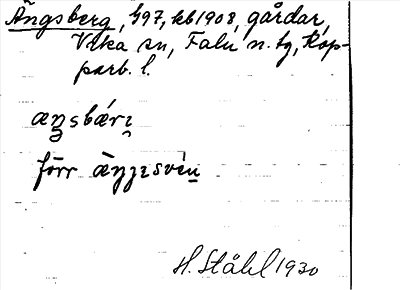 Ängsberg, 497, kb 1908, gårdar,
Vika sn, Falu n. tg, Kop-
parb. l.
æŋsbári
förr
H. Ståhl 1930